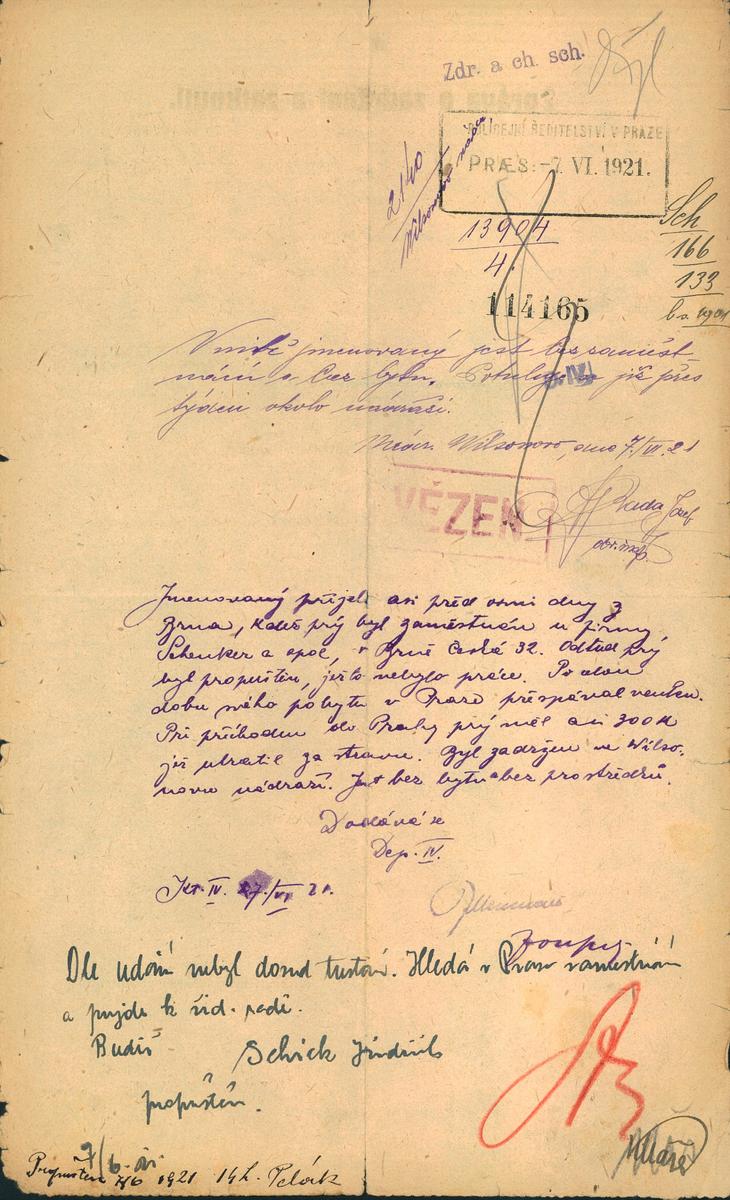 Zdr. a ch. sch.
POLICEJNÍ ŘEDITELSTVÍ V PRAZE
PRÆS: -7. VI. 1921.
2140
Wilsonovo nádr
13904
4
Sch
166
133
114165
Vnitř jmenovaný jest bez zaměst-
nání a bez bytu. Potuluje se již přes
týden okolo nádraží.
Nádr. Wilsonovo, dne 7./VI. 21
Rada Josef
VĚZEŇ
Jmenovaný přijel asi před osmi dny z
Brna, kdež prý byl zaměstnán u firmy
Schenker a spol, v Brně Česká 32. Odtud prý
byl propuštěn, ježto nebylo práce. Po dlou
dobu svého pobytu v Praze přespával venku.
Při příchodu do Prahy prý měl asi 300 K
již utratil za stravu. Byl zadržen na Wilso-
novu nádraží. Jest bez bytu a bez prostředků.
Dodává se
Dep. IV.
Kr. IV. 7./VI 21.
Dle udání nebyl dosud trestán. Hledá v Praze zaměstnání
a půjde k řid. radě.
Budiž Schick Jindřich
propuštěn.
7/6
Propuštěn 7/6 1921 14 h. Polák